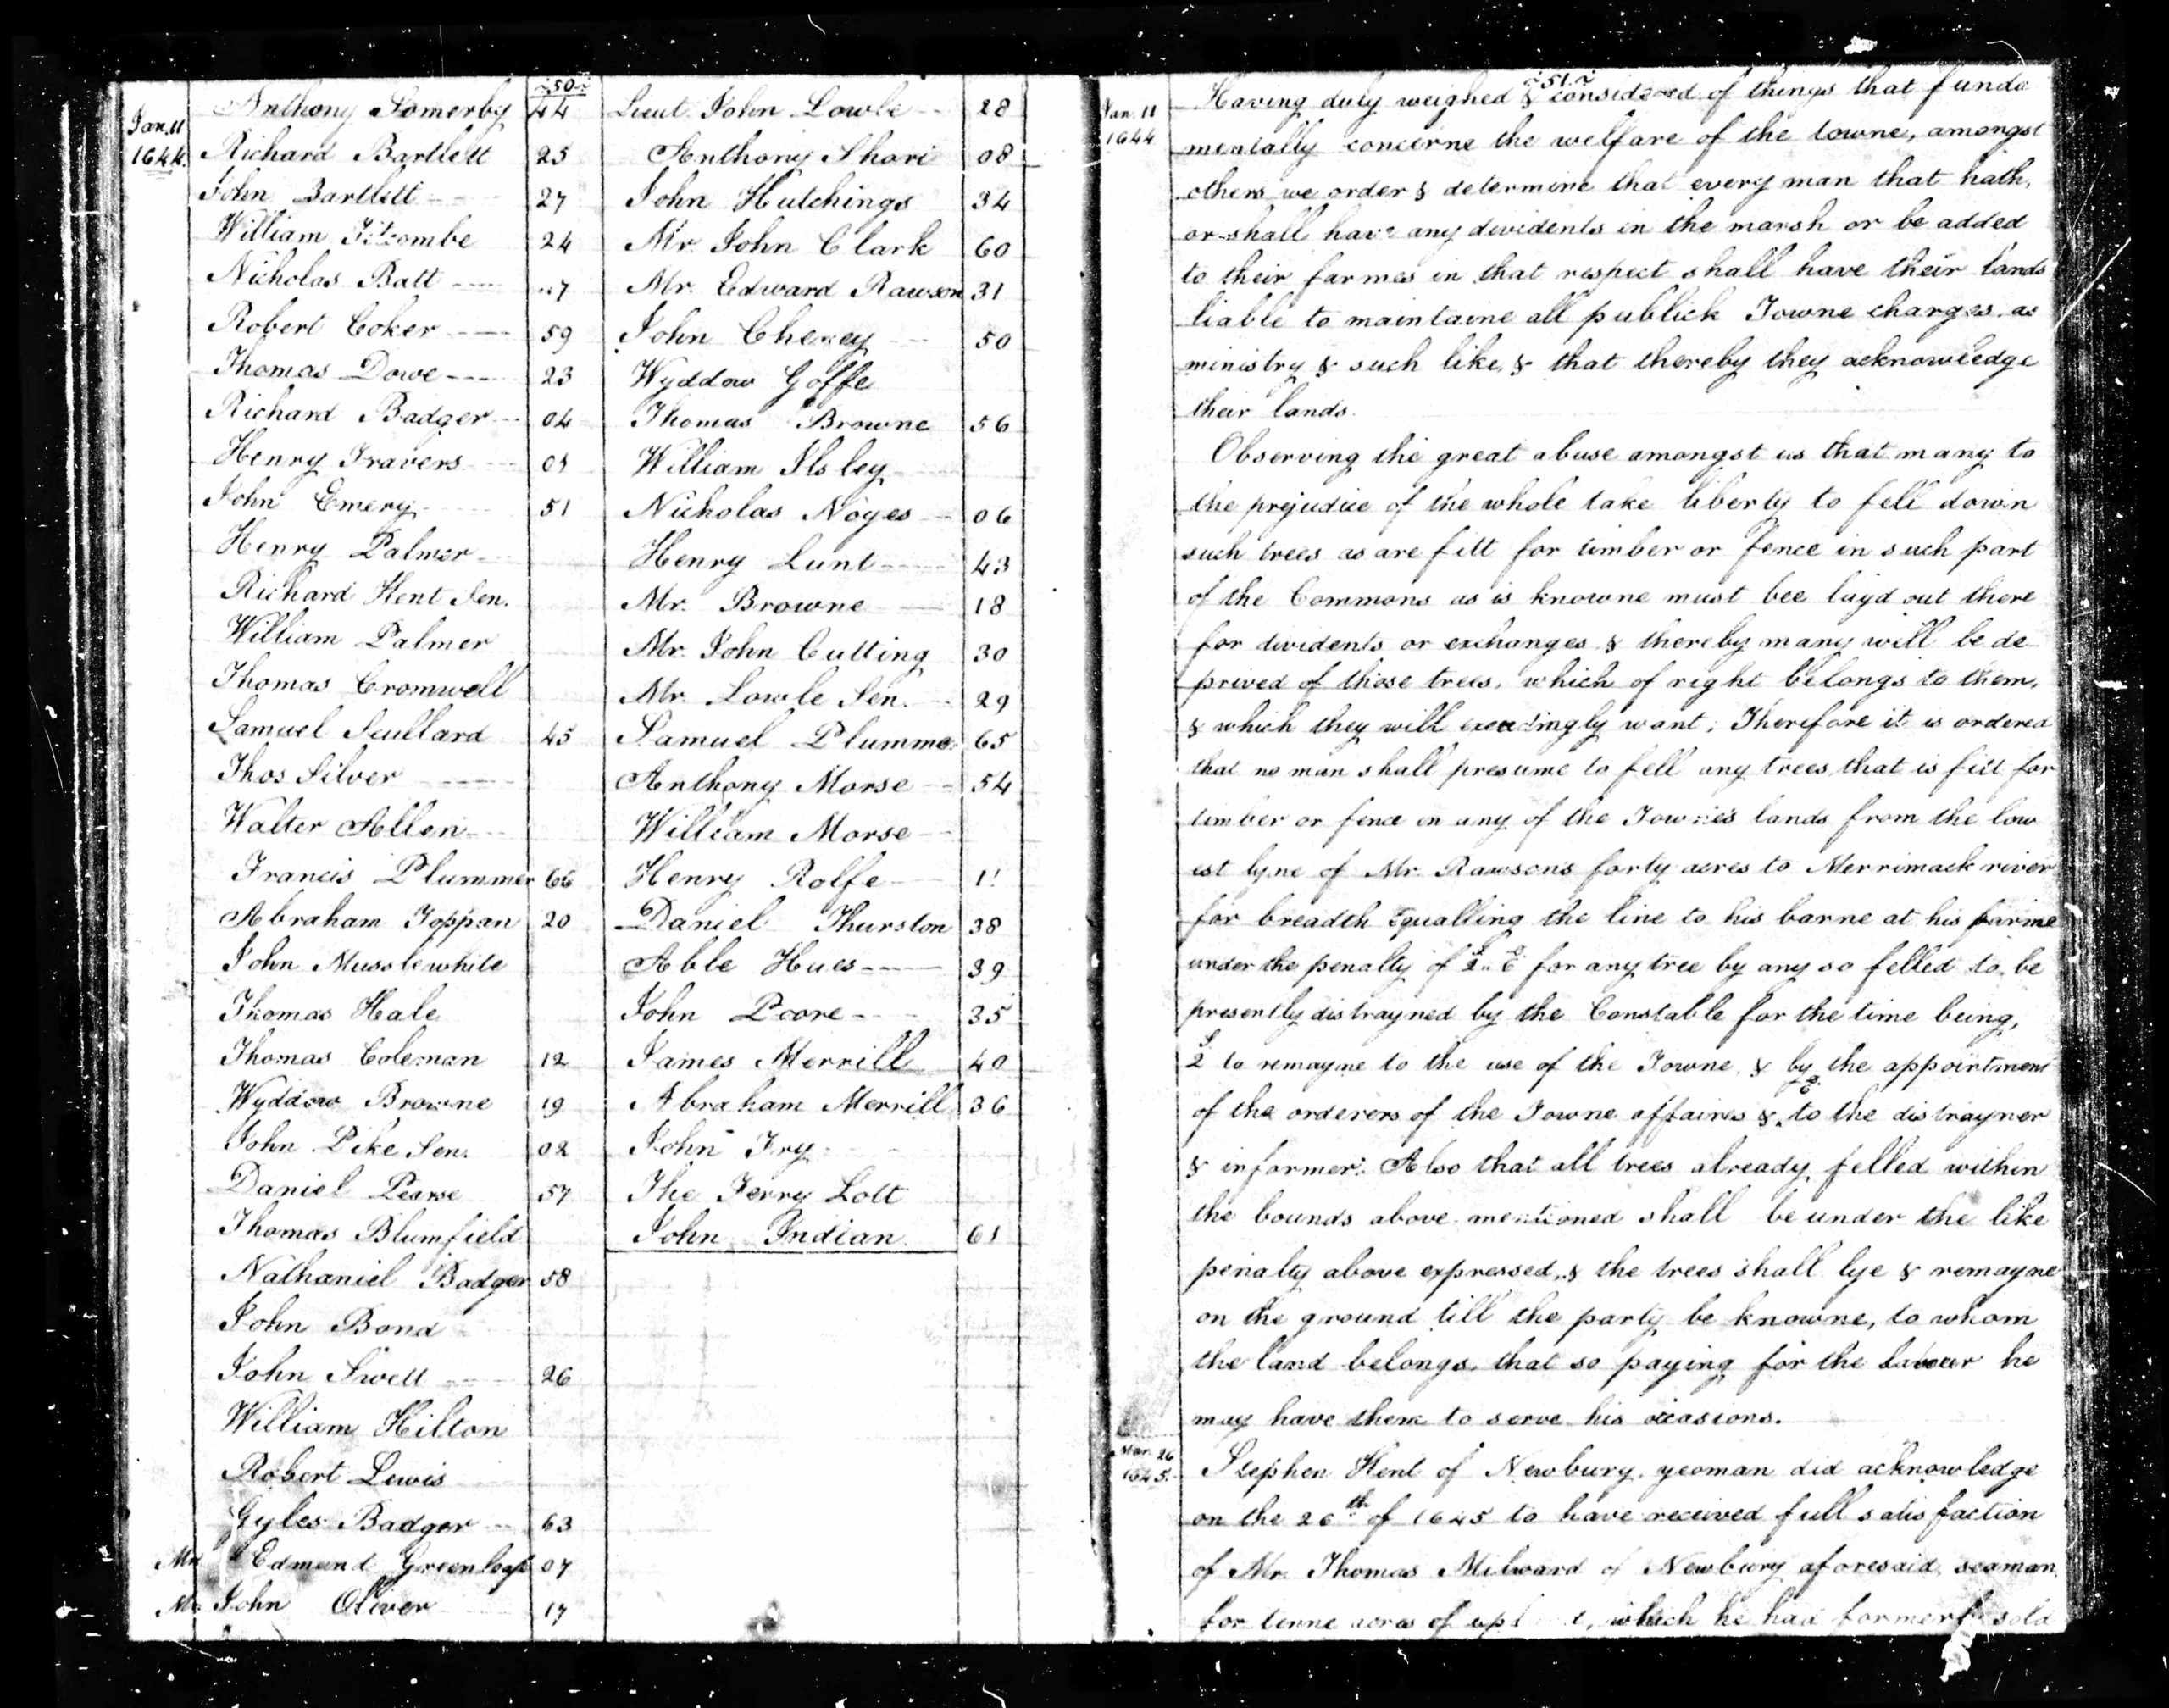 ~50~
Jan. 11
1644.
Anthony Somerby 44
Richard Bartlett 25
John Bartlett 27
William Titcombe 24
Nicholas Batt
Robert Coker 59
Thomas Dowe 23
Richard Badger 04
Henry Travers
John Emery 51
Henry Palmer
Richard Kent Sen.
William Palmer
Thomas Cromwell
Samuel Scullard 45
Thos Silver
Walter Allen
Francis Plummer 66
Abraham Toppan 20
John Musslewhite
Thomas Hale
Thomas Coleman 12
Wyddow Browne 19
John Pike Sen. 02
Daniel Pearse 57
Thomas Blumfield
Nathaniel Badger 58
John Bond
John Swett 26
William Hilton
Robert Lewis
Gyles Badger 63
Mr Edmund Greenleafe 07
Mr John Oliver 17
Lieut. John Lowle 28
Anthony Short 08
John Hutchings 34
Mr. John Clark 60
Mr. Edward Rawson 31
John Cheney 50
Wyddow Goffe
Thomas Browne 56
William Ilsley
Nicholas Noyes 06
Henry Lunt 43
Mr. Browne 18
Mr. John Cutting 30
Mr. Lowle Sen. 29
Samuel Plummer 65
Anthony Morse 54
William Morse
Henry Rolfe 11
Daniel Thurston 38
Able Hues 39
John Poore 35
James Merrill 40
Abraham Merrill 36
John Fry
The Ferry Lott
John Indian 61
~51~
Jan. 11
1644
Having duly weighed & considered of things that funda
mentally concerne the welfare of the towne, amongst
others we order & determine that every man that hath,
or shall have any dividents in the marsh or be added
to their farmes in that respect shall have their lands
liable to maintaine all publick Towne charges as
ministry & such like, & that thereby they acknowledge
their lands.
Observing the great abuse amongst us that many to
the prejudice of the whole take liberty to fell down
such trees as are fitt for timber or fence in such part
of the Commons as is knowne must bee layd out there
for dividents or exchanges & thereby many will be de
prived of those trees, which of right belongs to them,
& which they will exceedingly want; Therefore it is ordered
that no man shall presume to fell any trees that is fitt for
timber or fence on any of the Towne's lands from the low
est lyne of Mr. Rawson's forty acres to Merrimack river
for breadth equalling the line to his barne at his farme
under the penalty of for any tree by any so felled to be
presently distrayned by the Constable for the time being,
2 s to remayne to the use of the Towne & by the appointment
of the orderers of the Towne affaires & to the distrayner
& informer. Also that all trees already felled within
the bounds above mentioned shall be under the like
penalty above expressed, & the trees shall lye & remayne
on the ground till the party be knowne, to whom
the land belongs, that so paying for the labour he
may have them to serve his occasions.
Mar. 26
1645.
Stephen Kent of Newbury, yeoman did acknowledge
on the 26th of 1645 to have received full satisfaction
of Mr. Thomas Milward of Newbury aforesaid, seaman,
for tenne acres of which he had formerly sold